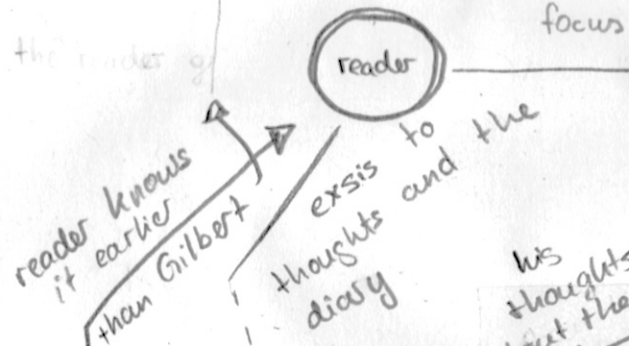 focus
the reader g
reader
reader knows
it earlier
than Gilbert
exsis to
thoughts and the
diary
his
thoughts
the